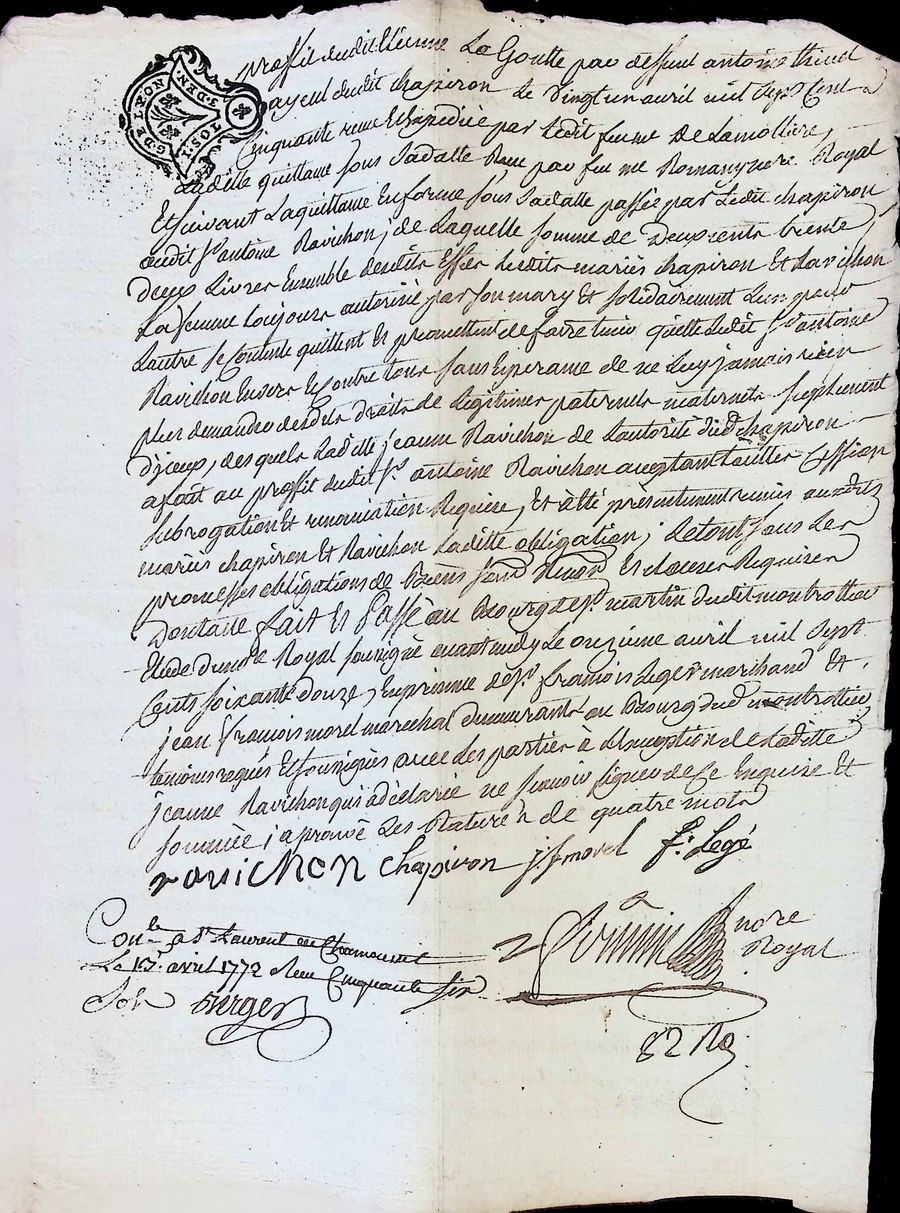 G.DE LYON
TOS.I
3.DEN.
proffit dudit Etienne La Goutte par deffunt antoine
ayeul dudit chapiron le vingt un avril mil sept Cent
Cinquante neuf Expediée par ledit feu me De Lamolliere,
Laditte quittance sous sa datte Reçue par feu me Romany nore Royal
Et suivant La quittance en forme sous sa datte passée par Ledit chapiron
audit sr antoine Ravichon ; de Laquelle somme de Deux cents trente
deux Livres Ensemble desdits Effets lesdits mariés chapiron Et Ravichon
La femme toujours autorisée par son mary Et solidairement L'un pour
L'autre se contente quittent Et promettent de faire tenir quitte Ledit sr antoine
Ravichon Envers Et contre tous sans Esperance de ne Luy jamais rien
plus demander desdits droits de Legitimes paternels maternels suplement
d'jceux, des quels Laditte jeanne Ravichon de L'autorité dud chapiron
a fait au proffit dudit sr antoine Ravichon Cession
subrogation Et renonciation Requise, Et a été presentement remis auxdits
mariés chapiron Et Ravichon Laditte obligation ; Le tout sous Les
promesses obligations de Biens Et clauses Requises
Dont acte fait Et Passé au Bourg de st martin dudit montrottier
Etude du nore Royal soussigné avant midy Le onzieme avril mil sept
Cents soixante douze, En presence de sr francois Leger marchand Et
jean francois morel marechal demeurants au Bourg dud montrottier
temoins requis Et soussignés avec Les parties à L'Exception de Laditte
jeanne Ravichon qui a déclaré ne sçavoir signer de Ce Enquise Et
sommée j'aprouve Les Rature de quatre mots
ravichon chapiron j. f morel f. Legé
nore
Royal
Conlé a st Laurent de Chamousset
Le 13 avril 1772 Reçu Cinquante six
Sols Berger